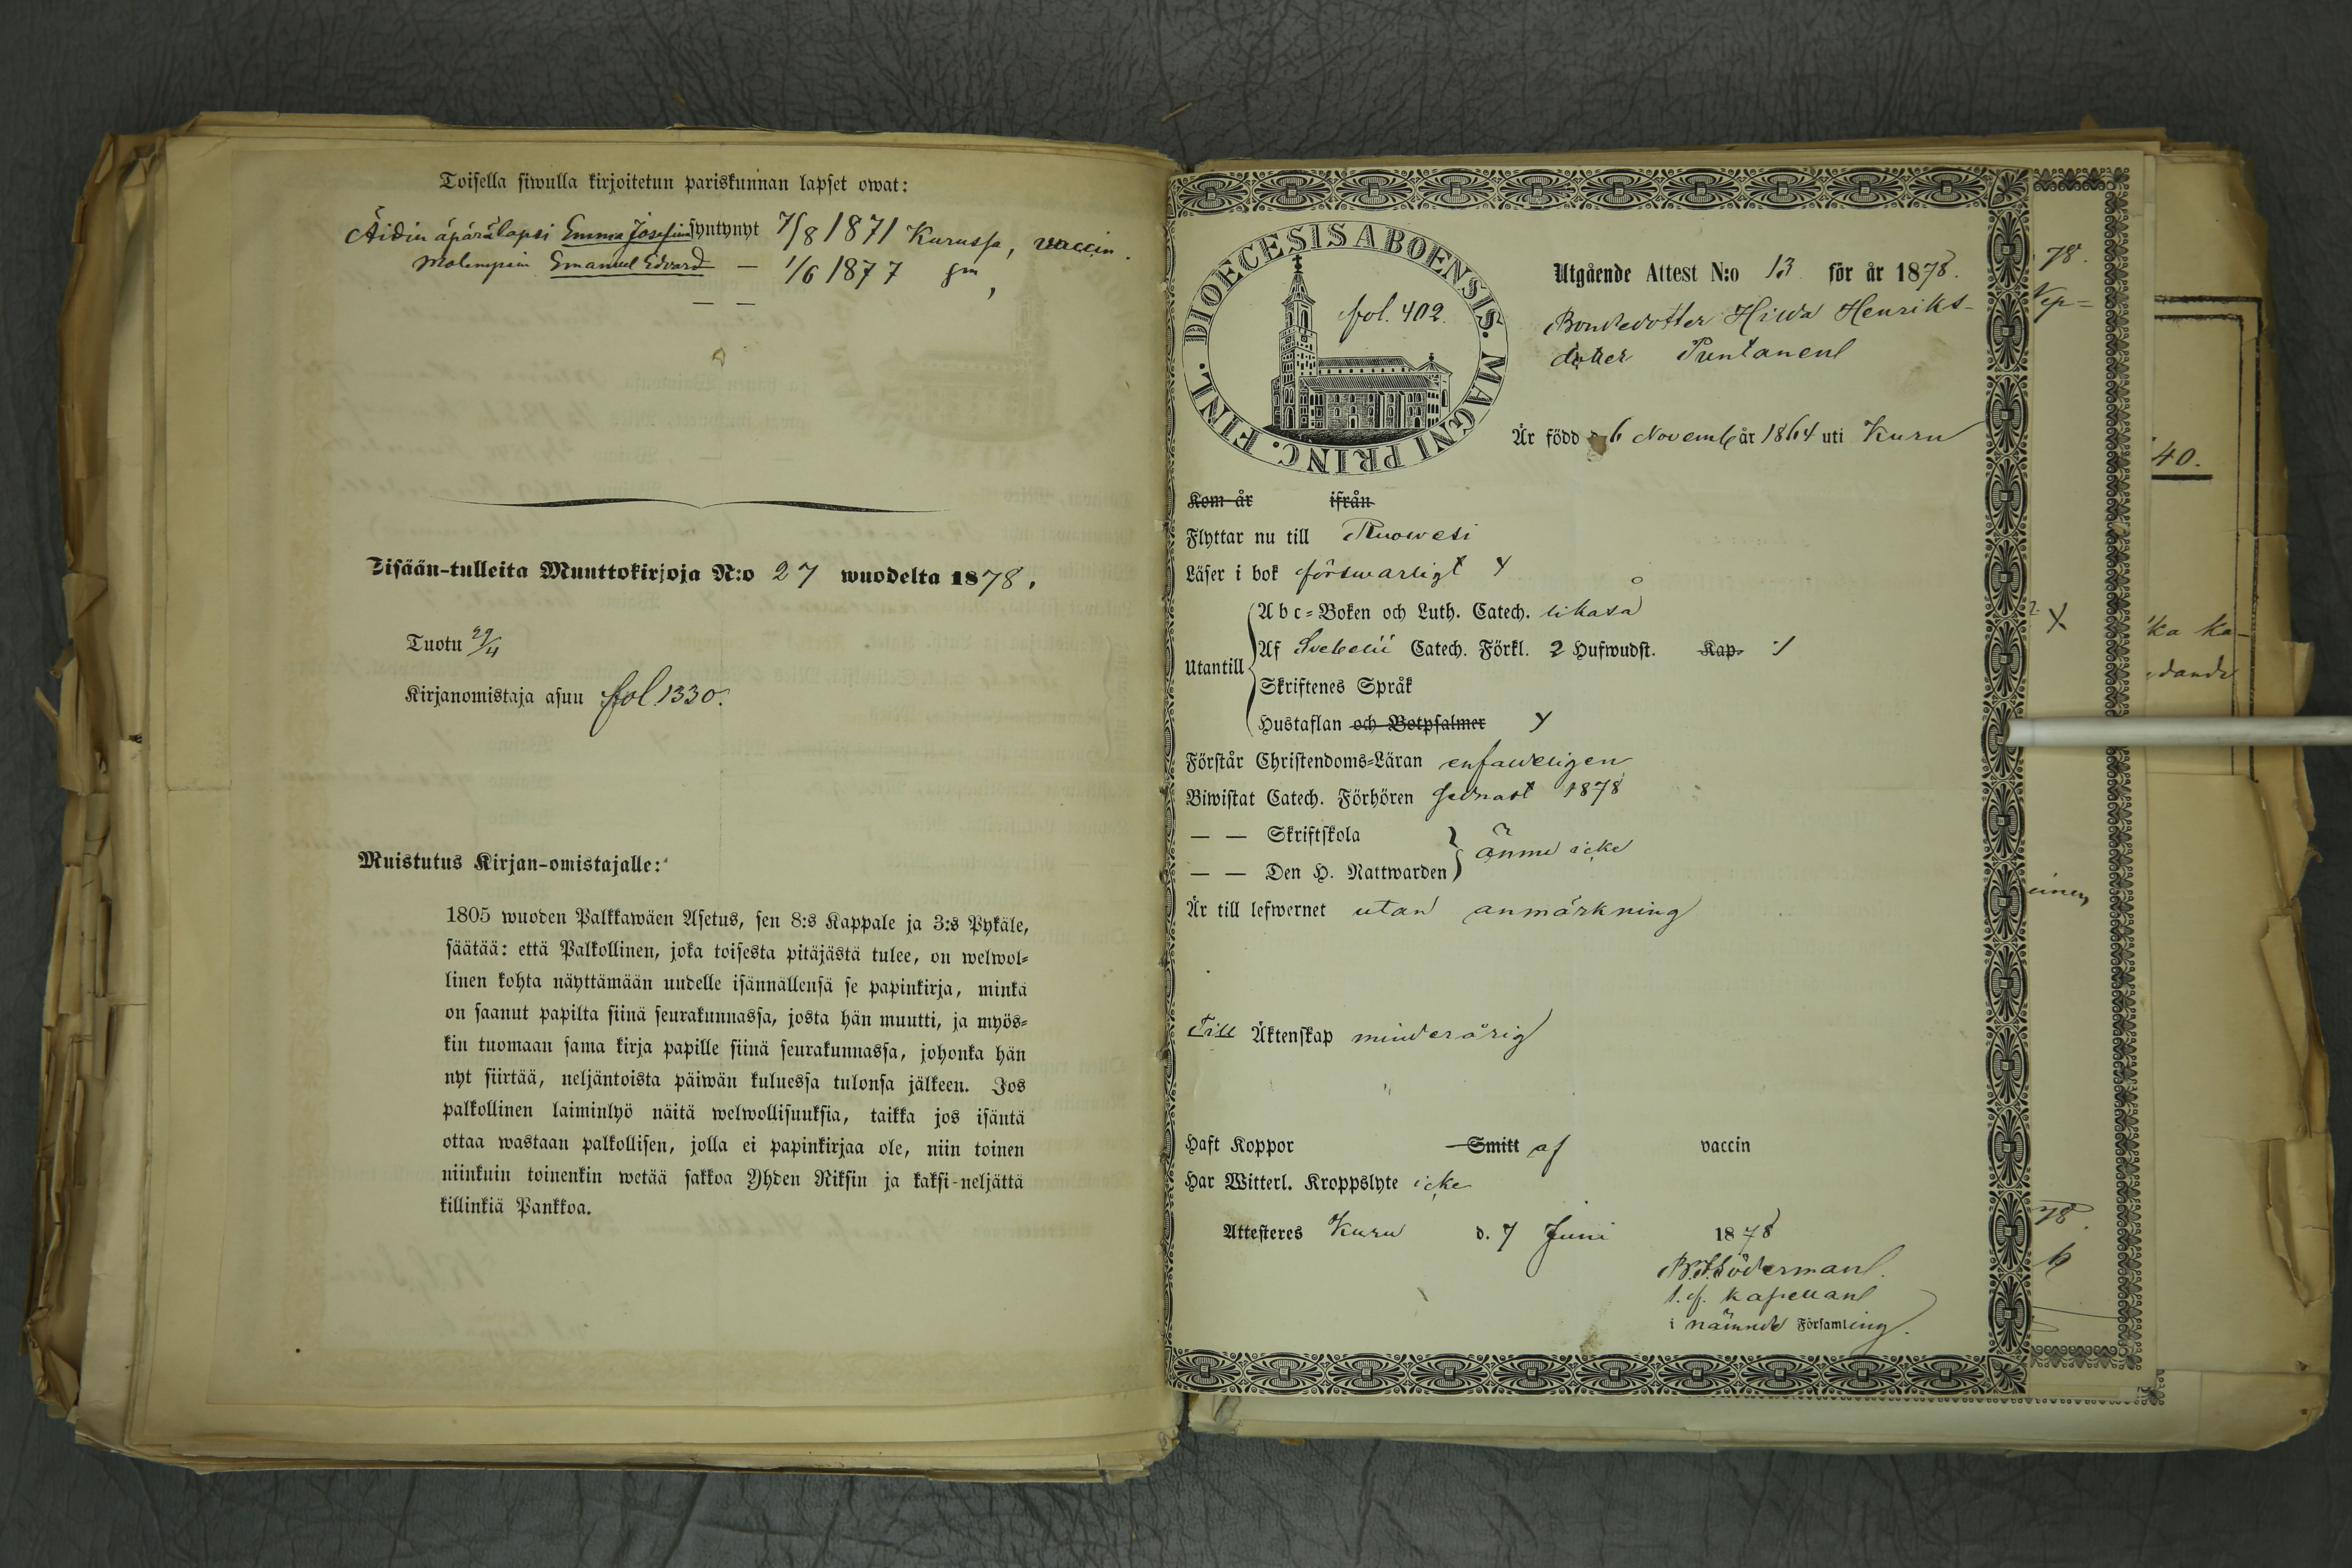 Toisella siwulla kirjoitetun pariskunnan lapset owat:
Äidin äpärälapsi Emma Josefina syntynyt 7/8 1871 Kurussa, vaccin.
Molempain Emanuel Edvard — 1/6 1877 sm,
— —
Sisään-tulleita Muuttokirjoja N:o 27 wuodelta 1878.
Tuotu 29/4
Kirjanomistaja asuu fol 1330.
Muistutus Kirjan-omistajalle:
1805 wuoden Palkkawäen Asetus, sen 8:s Kappale ja 3:s Pykäle,
säätää: että Palkollinen, joka toisesta pitäjästä tulee, on welwol-
linen kohta näyttämään uudelle isännällensä se papinkirja, minkä
on saanut papilta siinä seurakunnassa, josta hän muutti, ja myös-
kin tuomaan sama kirja papille siinä seurakunnassa, johonka hän
nyt siirtää, neljäntoista päiwän kuluessa tulonsa jälkeen. Jos
palkollinen laiminlyö näitä welwollisuuksia, taikka jos isäntä
ottaa wastaan palkollisen, jolla ei papinkirjaa ole, niin toinen
niinkuin toinenkin wetää sakkoa Yhden Riksin ja kaksi-neljättä
killinkiä Pankkoa.
DIOECESIS ABOENSIS. MAGNI PRINC. FINL.
fol. 402.
Utgående Attest N:o 13 för år 1878.
Bondedotter Hilda Henriks-
dotter Puntanen
Är född d. 6 Novemb år 1864 uti Kuru
Kom år ifrån
Flyttar nu till Ruowesi
Läser i bok förswarligt Y
Utantill
Abc-Boken och Luth. Catech. likaså
Af Svebelii Catech. Förkl. 2 Hufwudst. Kap. Y
Skriftenes Språk
Hustaflan och Botpsalmer Y
Förstår Christendoms-Läran enfaldeligen
Biwistat Catech. Förhören sednast 1878
— — Skriftskola
— — Den H. Nattwarden
ännu icke
Är till lefwernet utan anmärkning
Till Äktenskap minderårig
Haft Koppor Smitt af vaccin
Har Witterl. Kroppslyte icke
Attesteres Kuru d. 7 Juni 1878
B. Söderman.
t.f. kapellan
i nämnde Församling.
78.
40.
'ka ka-
einen
78.